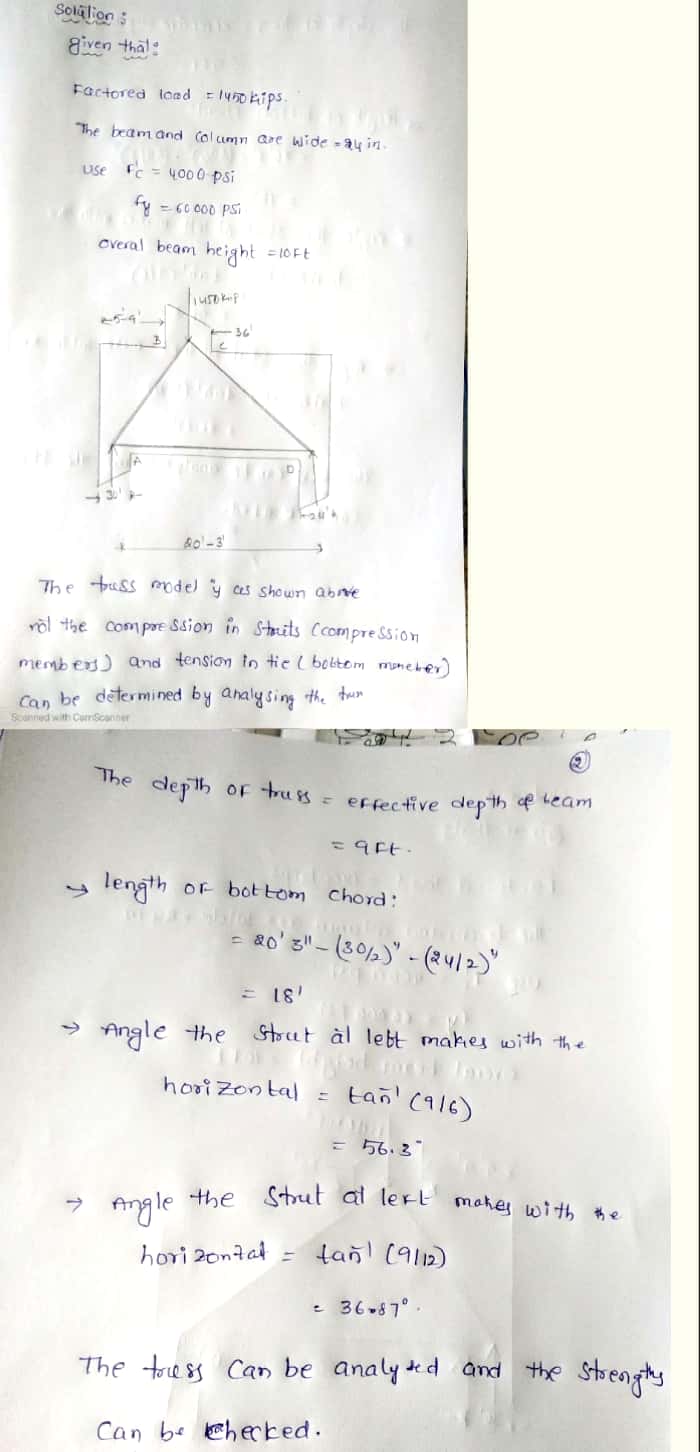 Solution :
given that :
Factored load = 1450 kips.
The beam and Column are wide = 24 in.
use f'c = 4000 psi
fy = 60000 PSi
overal beam height = 10Ft
1450 kip
5'-9'
36'
B
C
A
D
30'
24'
20'-3'
The truss model is as shown above
the compression in Struts (compression
members) and tension in tie (bottom member)
Can be determined by analysing the
Scanned with CamScanner
2
The depth of truss = effective depth of beam
= 9 Ft.
→ length of bottom chord :
= 20' 3" - (30/2)" - (24/2)"
= 18'
→ Angle the Strut at left makes with the
horizontal = tan¯¹ (9/6)
= 56.3°
→ Angle the Strut at left makes with the
horizontal = tan¯¹ (9/12)
= 36.87°.
The truss Can be analysed and the Strengths
Can be checked.